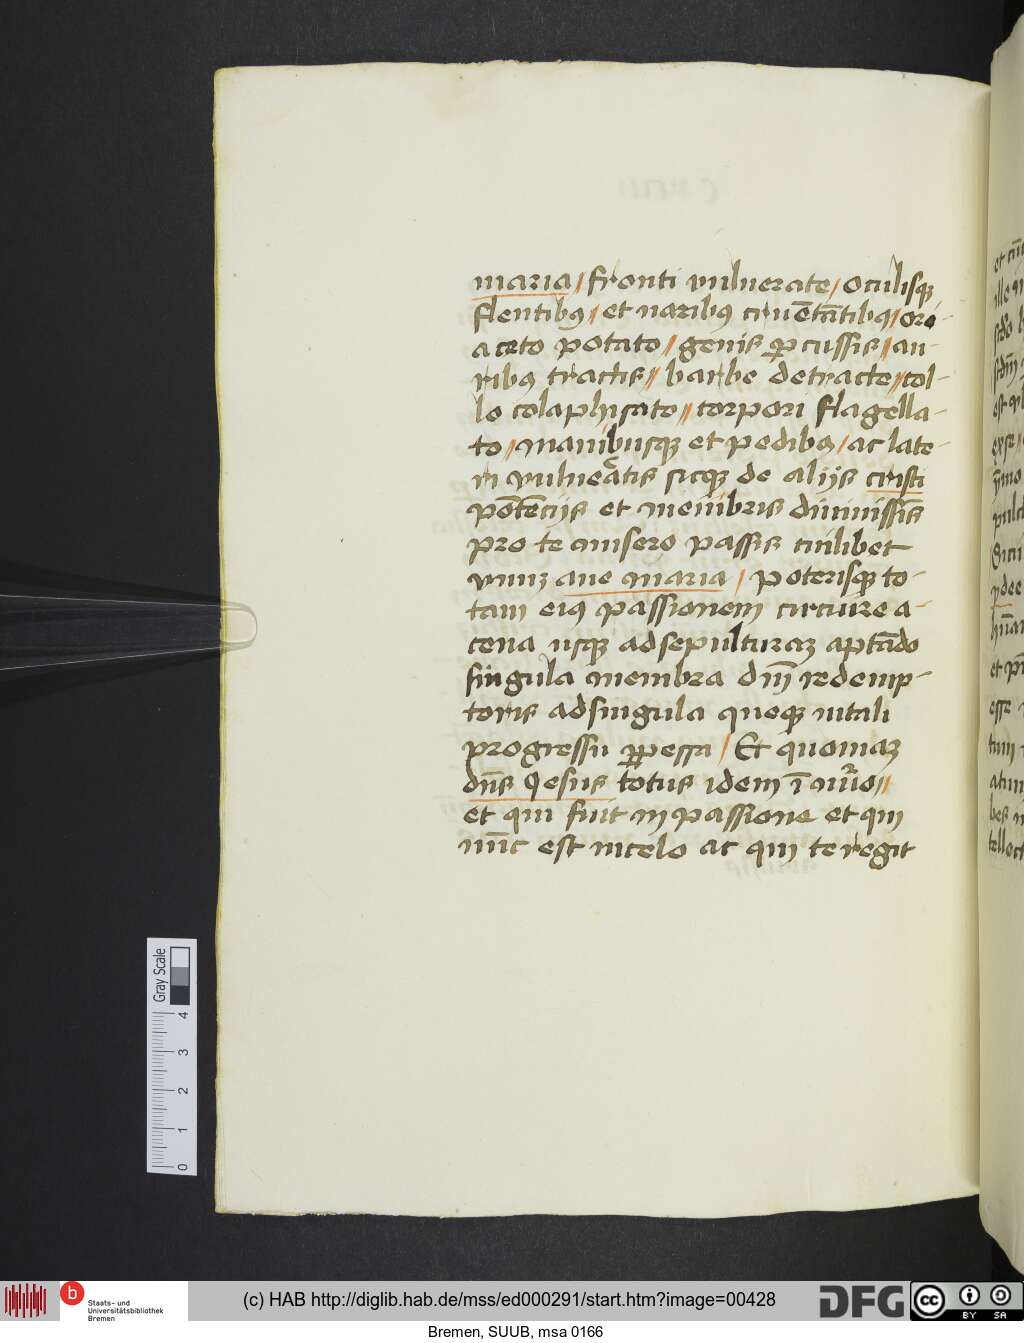 maria / fronti vulnerate / Oculisqꝫ
flentibꝰ / et naribꝰ cruētātibꝰ / ori
aceto potato / genis ꝑcussis // au-
ribꝰ tractis // barbe detracte // col-
lo colaphisato // corpori flagella-
to / manibusqꝫ et pedibꝰ / ac late-
ri vulneratis sicqꝫ de alijs cristi
potētijs et membris diuinissīs
pro te misero passis cuilibet
vnuꝫ aue maria / poterisqꝫ to-
tam eiꝰ passionem circuire a-
cena usqꝫ ad sepulturaꝫ aptādo
singula membra dn̄i redemp-
toris ad singula queqꝫ vitali
progressu ꝑpessa / Et quoniaꝫ
dn̄s Jesus totus idem ī nūo //
et qui fuit in passione et qui
nūc est in celo ac qui te regit
Gray Scale
0 1 2 3 4
b
Staats- und
Universitätsbibliothek
Bremen
(c) HAB http://diglib.hab.de/mss/ed000291/start.htm?image=00428
DFG
cc BY SA
Bremen, SUUB, msa 0166